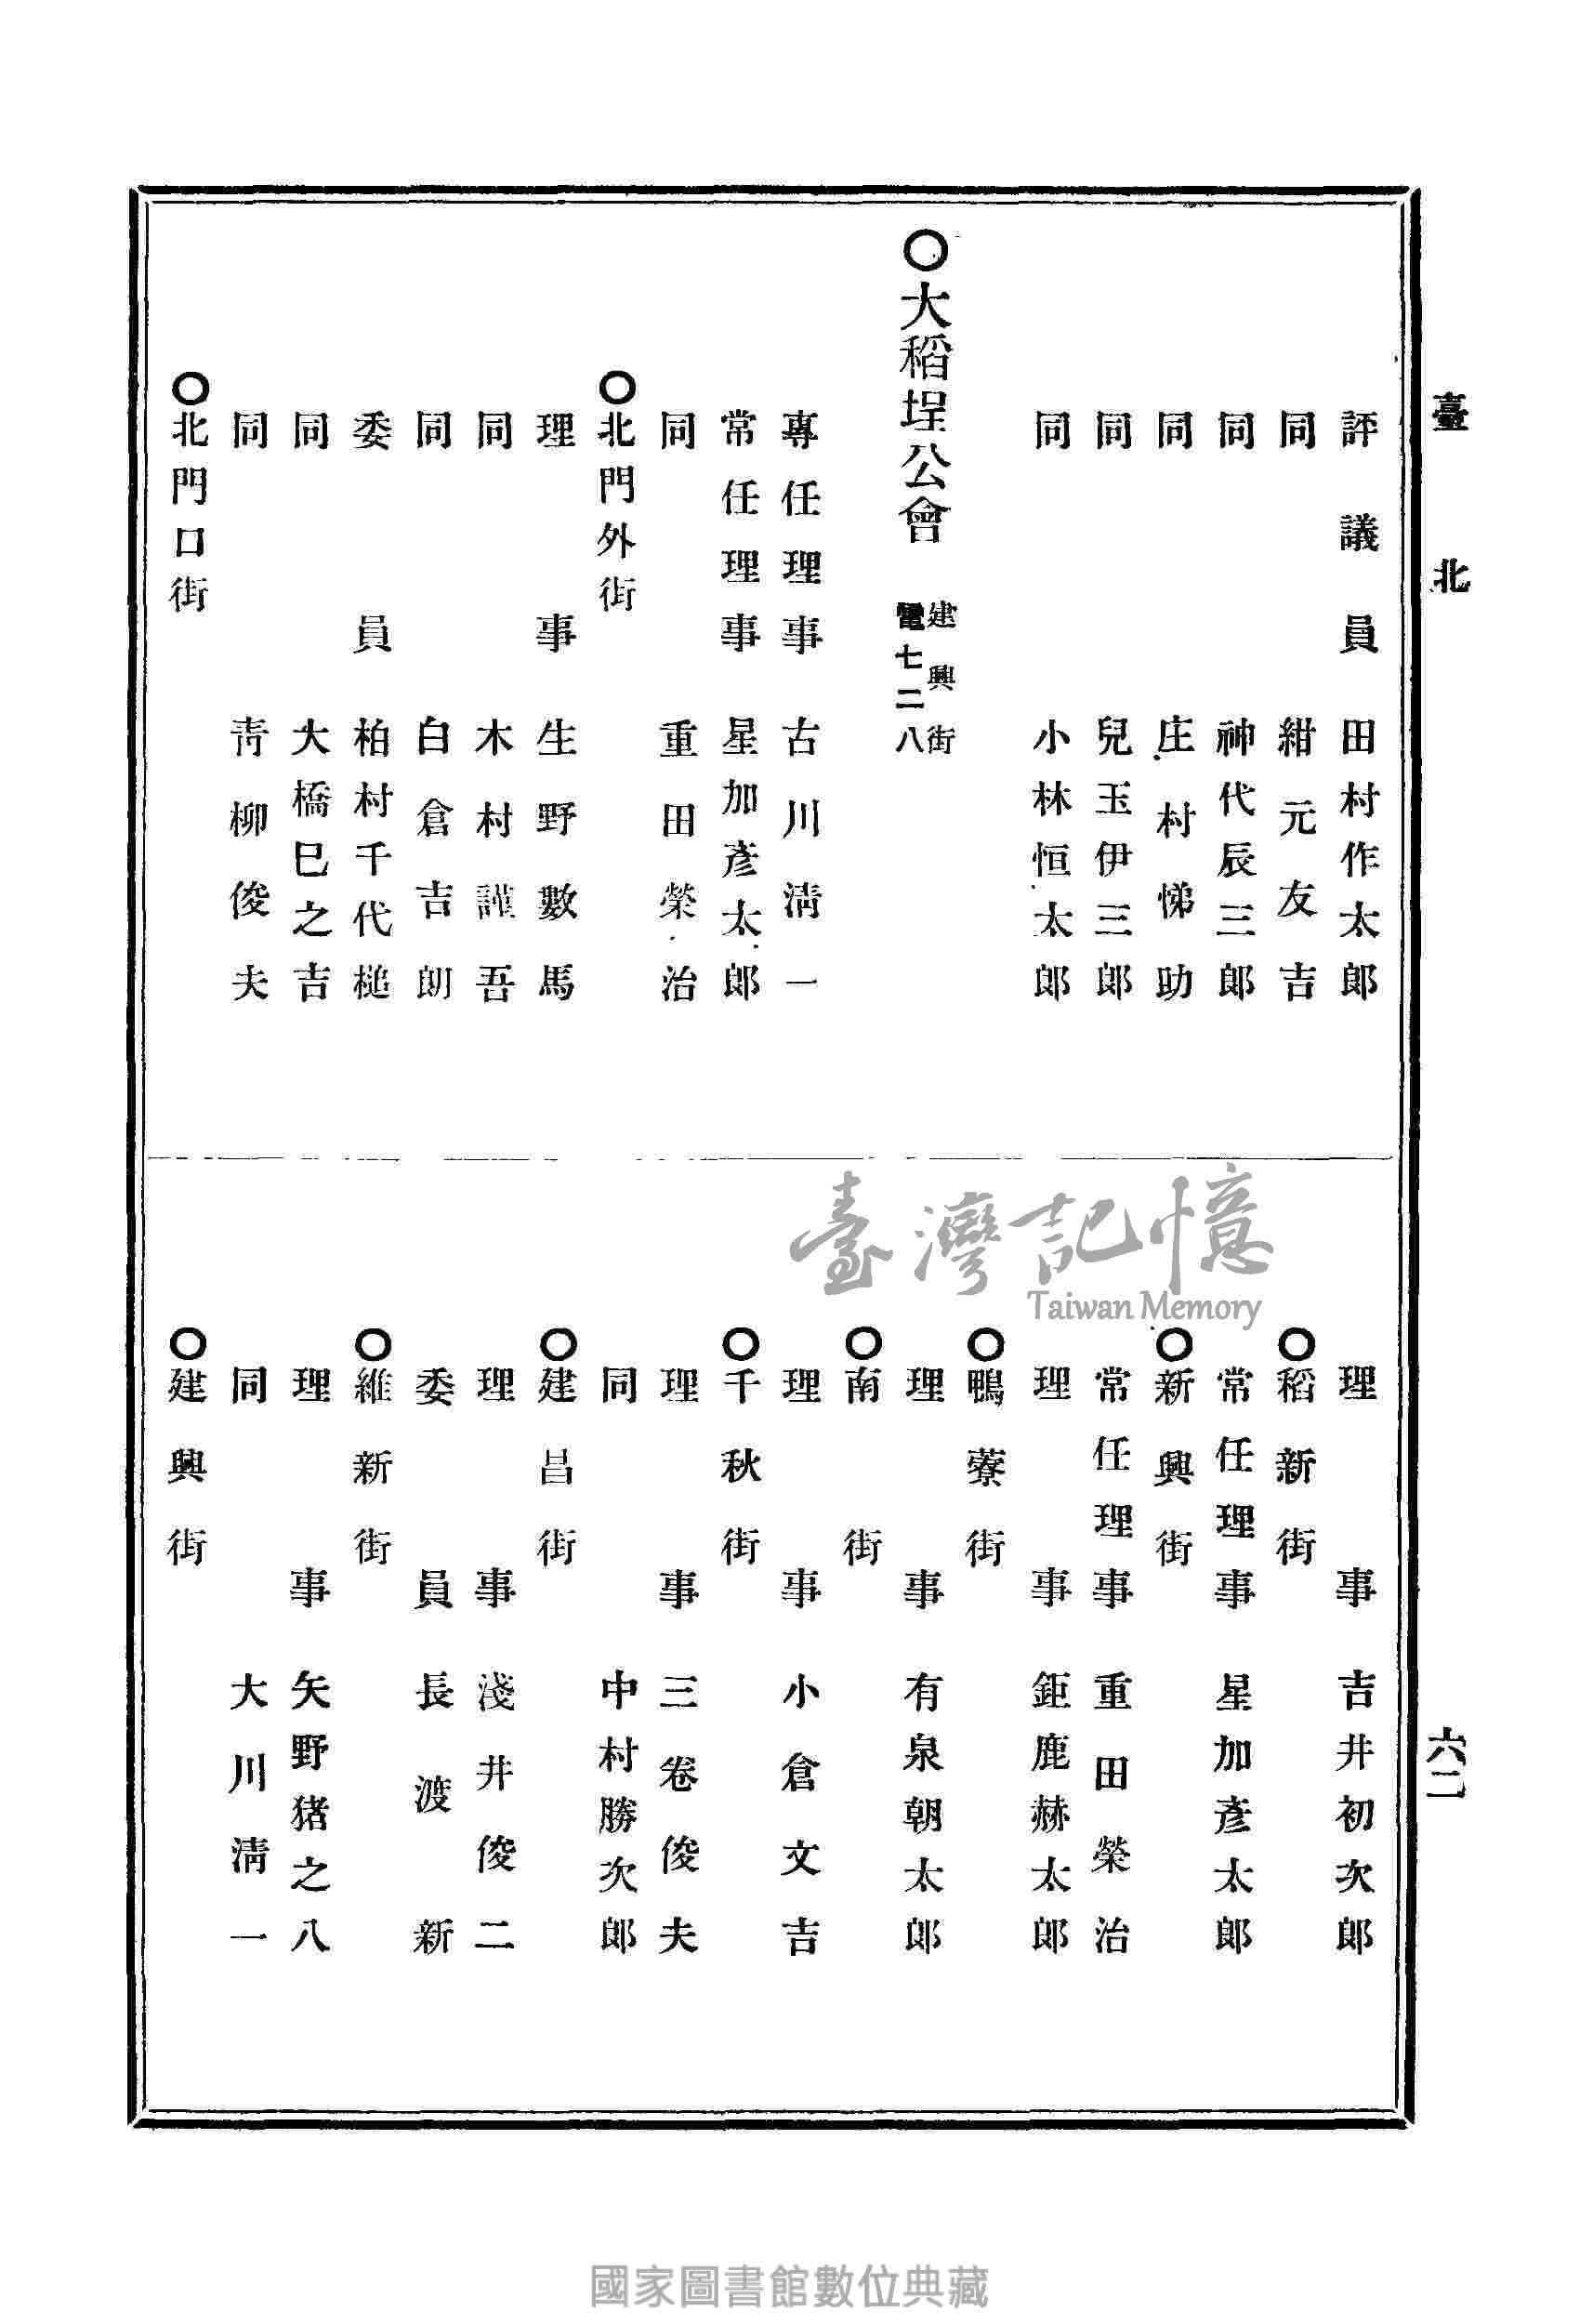 臺北
六二
評議員 田村作太郎
同 紺元友吉
同 神代辰三郎
同 庄村悌助
同 兒玉伊三郎
同 小林恒太郎
○大稻埕公會 建興街 電七二八
專任理事 古川淸一
常任理事 星加彥太郎
同 重田榮治
○北門外街
理事 生野數馬
同 木村謹吾
同 白倉吉朗
委員 柏村千代槌
同 大橋巳之吉
同 靑柳俊夫
○北門口街
理事 吉井初次郎
○稻新街
常任理事 星加彥太郎
○新興街
常任理事 重田榮治
理事 鉅鹿赫太郎
○鴨藔街
理事 有泉朝太郎
○南街
理事 小倉文吉
○千秋街
理事 三卷俊夫
同 中村勝次郎
○建昌街
理事 淺井俊二
委員 長渡新
○維新街
理事 矢野猪之八
同 大川淸一
○建興街
臺灣記憶
Taiwan Memory
國家圖書館數位典藏